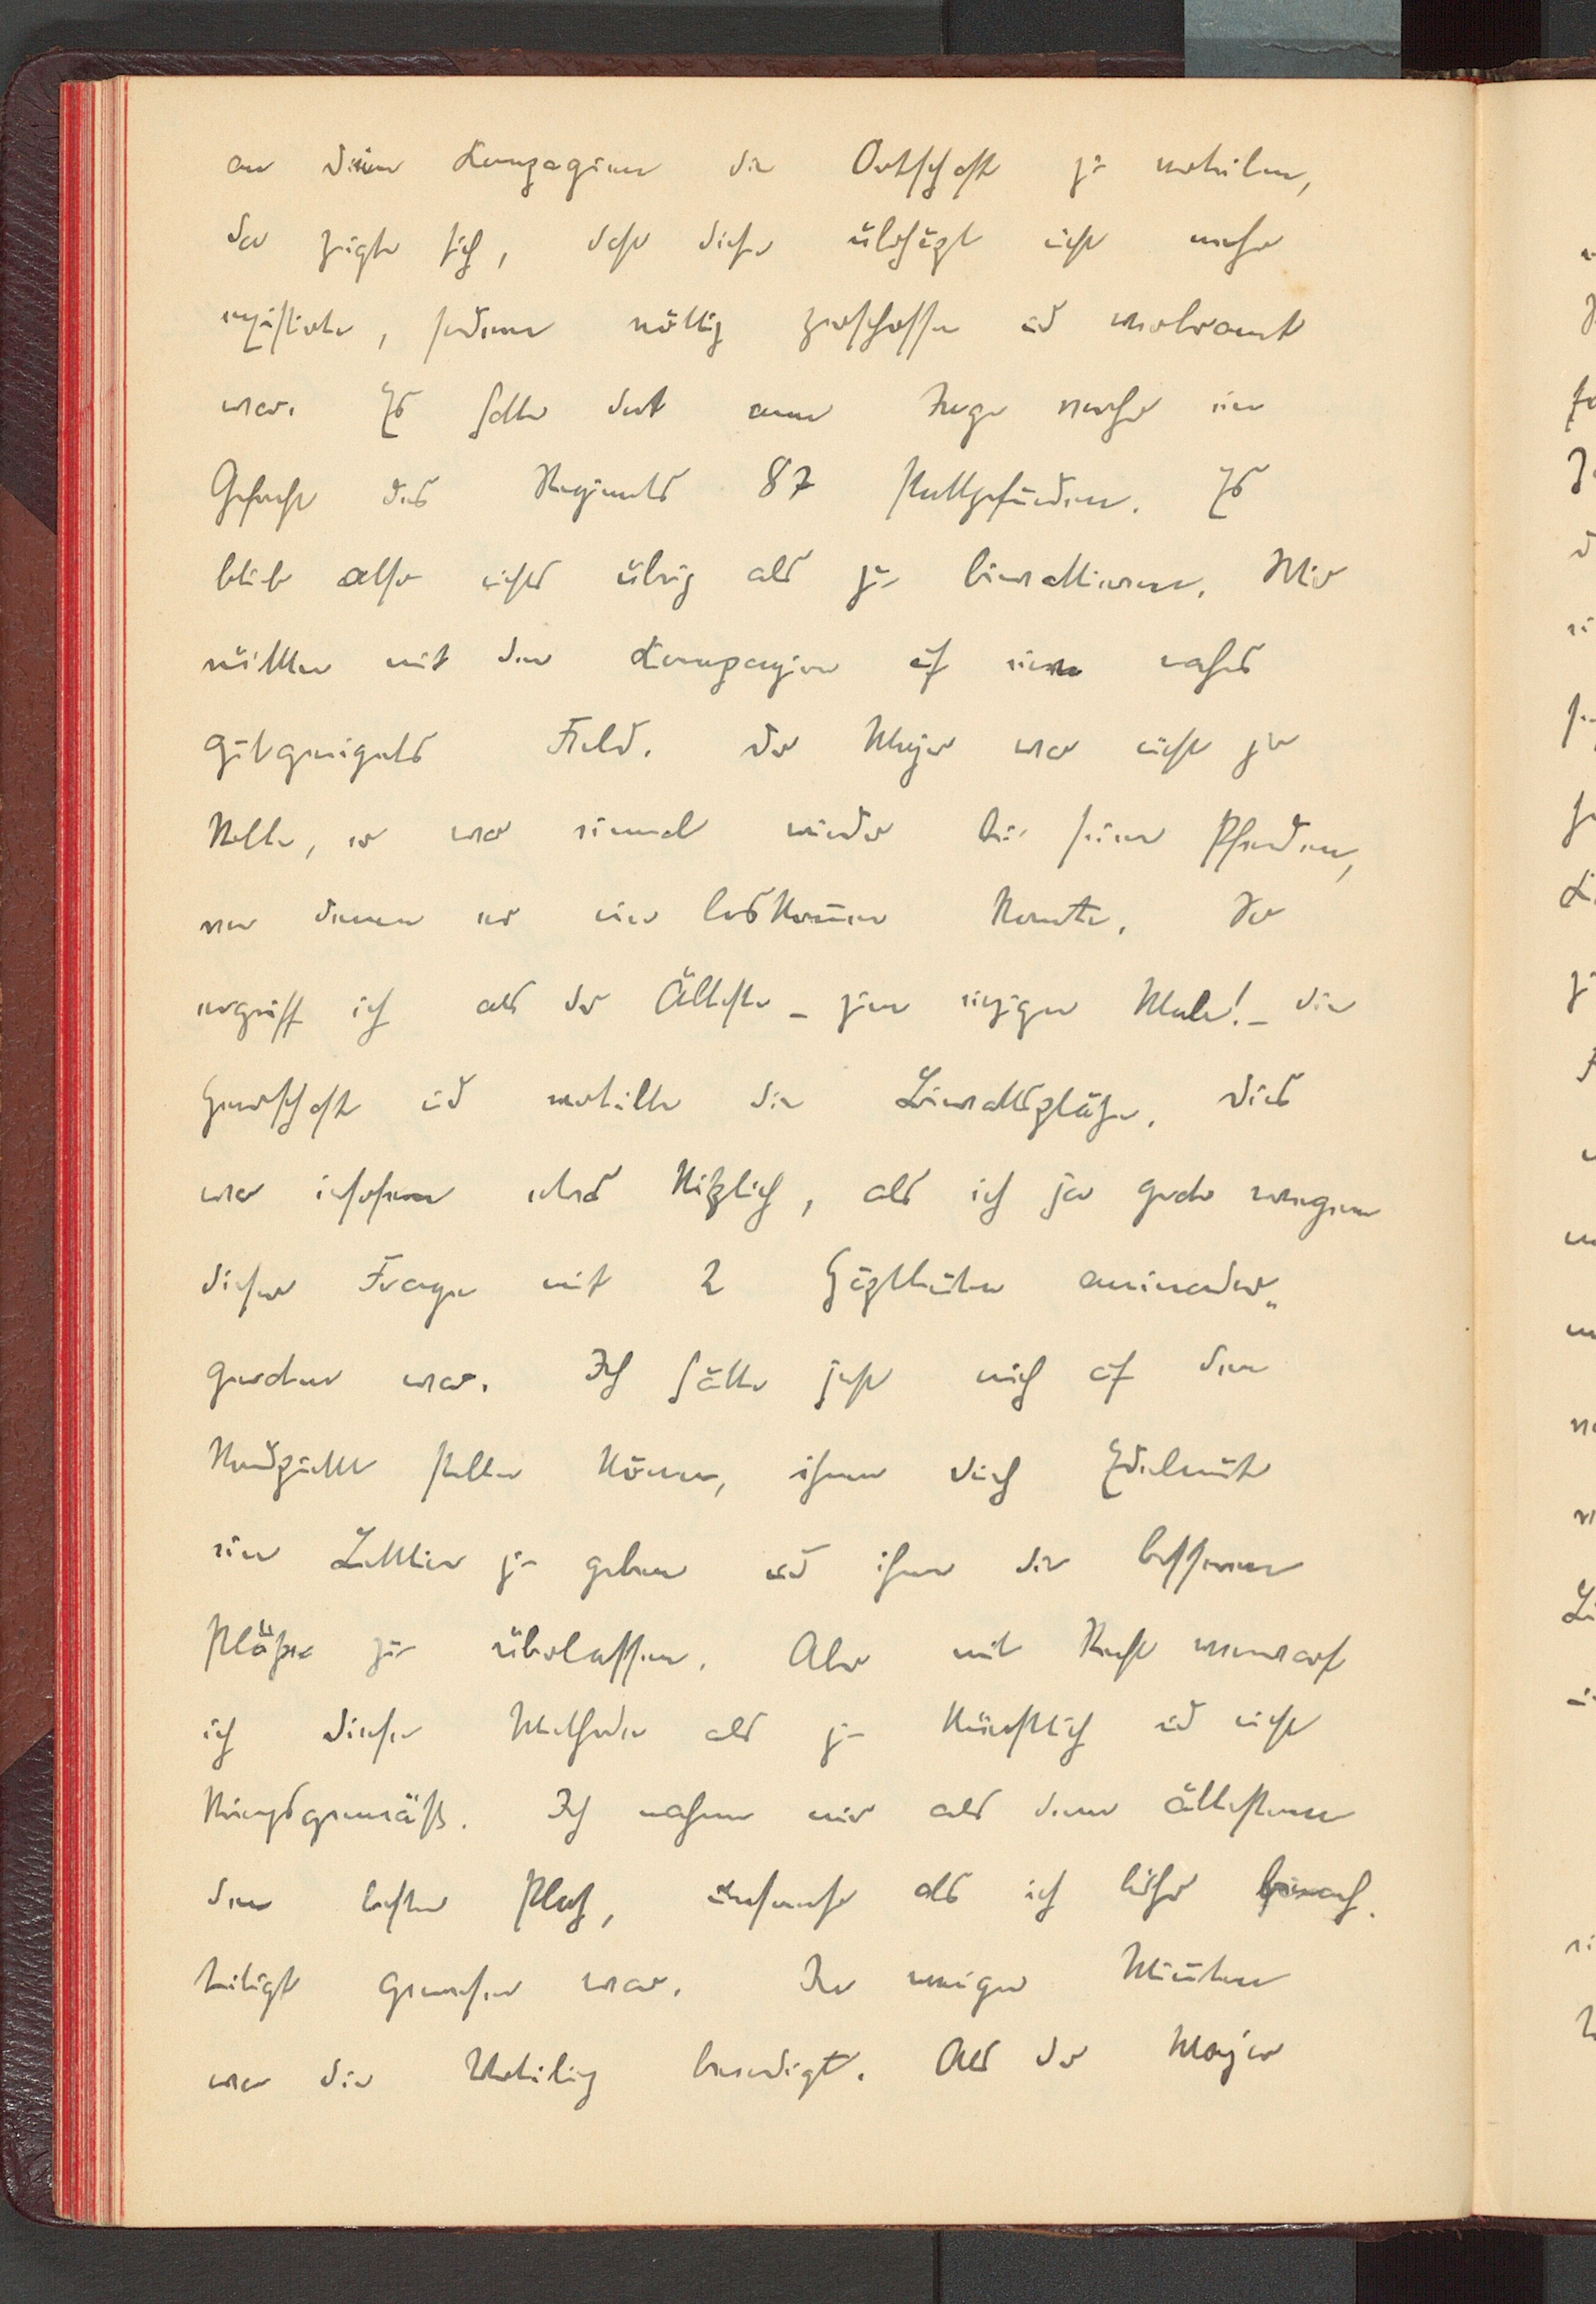 an die Kompagnien die Ortschaft zu verteilen,
da zeigte sich, dass diese überhaupt nicht mehr
existierte, sondern völlig zerschossen und verbrannt
war. Es hatte dort am Tage vorher ein
Gefecht des Regiments 87 stattgefunden. Es
blieb also nichts übrig als zu biwakieren. Wir
rückten mit den Kompagnien auf ein nahes
gutgeeignetes Feld. Der Major war nicht zur
Stelle, er war einmal wieder bei seinen Pferden,
von denen er nie loskommen konnte. Da
ergriff ich als der Älteste – zum einzigen Male! – die
Herrschaft und verteilte die Biwaksplätze. Dies
war insofern etwas kitzlich, als ich ja gerade wegen
dieser Frage mit 2 Hauptleuten aneinander-
geraten war. Ich hätte jetzt mich auf den
Standpunkt stellen können, ihnen durch Edelmut
eine Lektion zu geben und ihnen die besseren
Plätze zu überlassen. Aber mit Recht verwarf
ich diese Methode als zu künstlich und nicht
kriegsgemäß. Ich nahm mir als dem ältesten
den besten Platz, umsomehr als ich bisher benach-
teiligt gewesen war. In wenigen Minuten
war die Verteilung beendigt. Als der Major